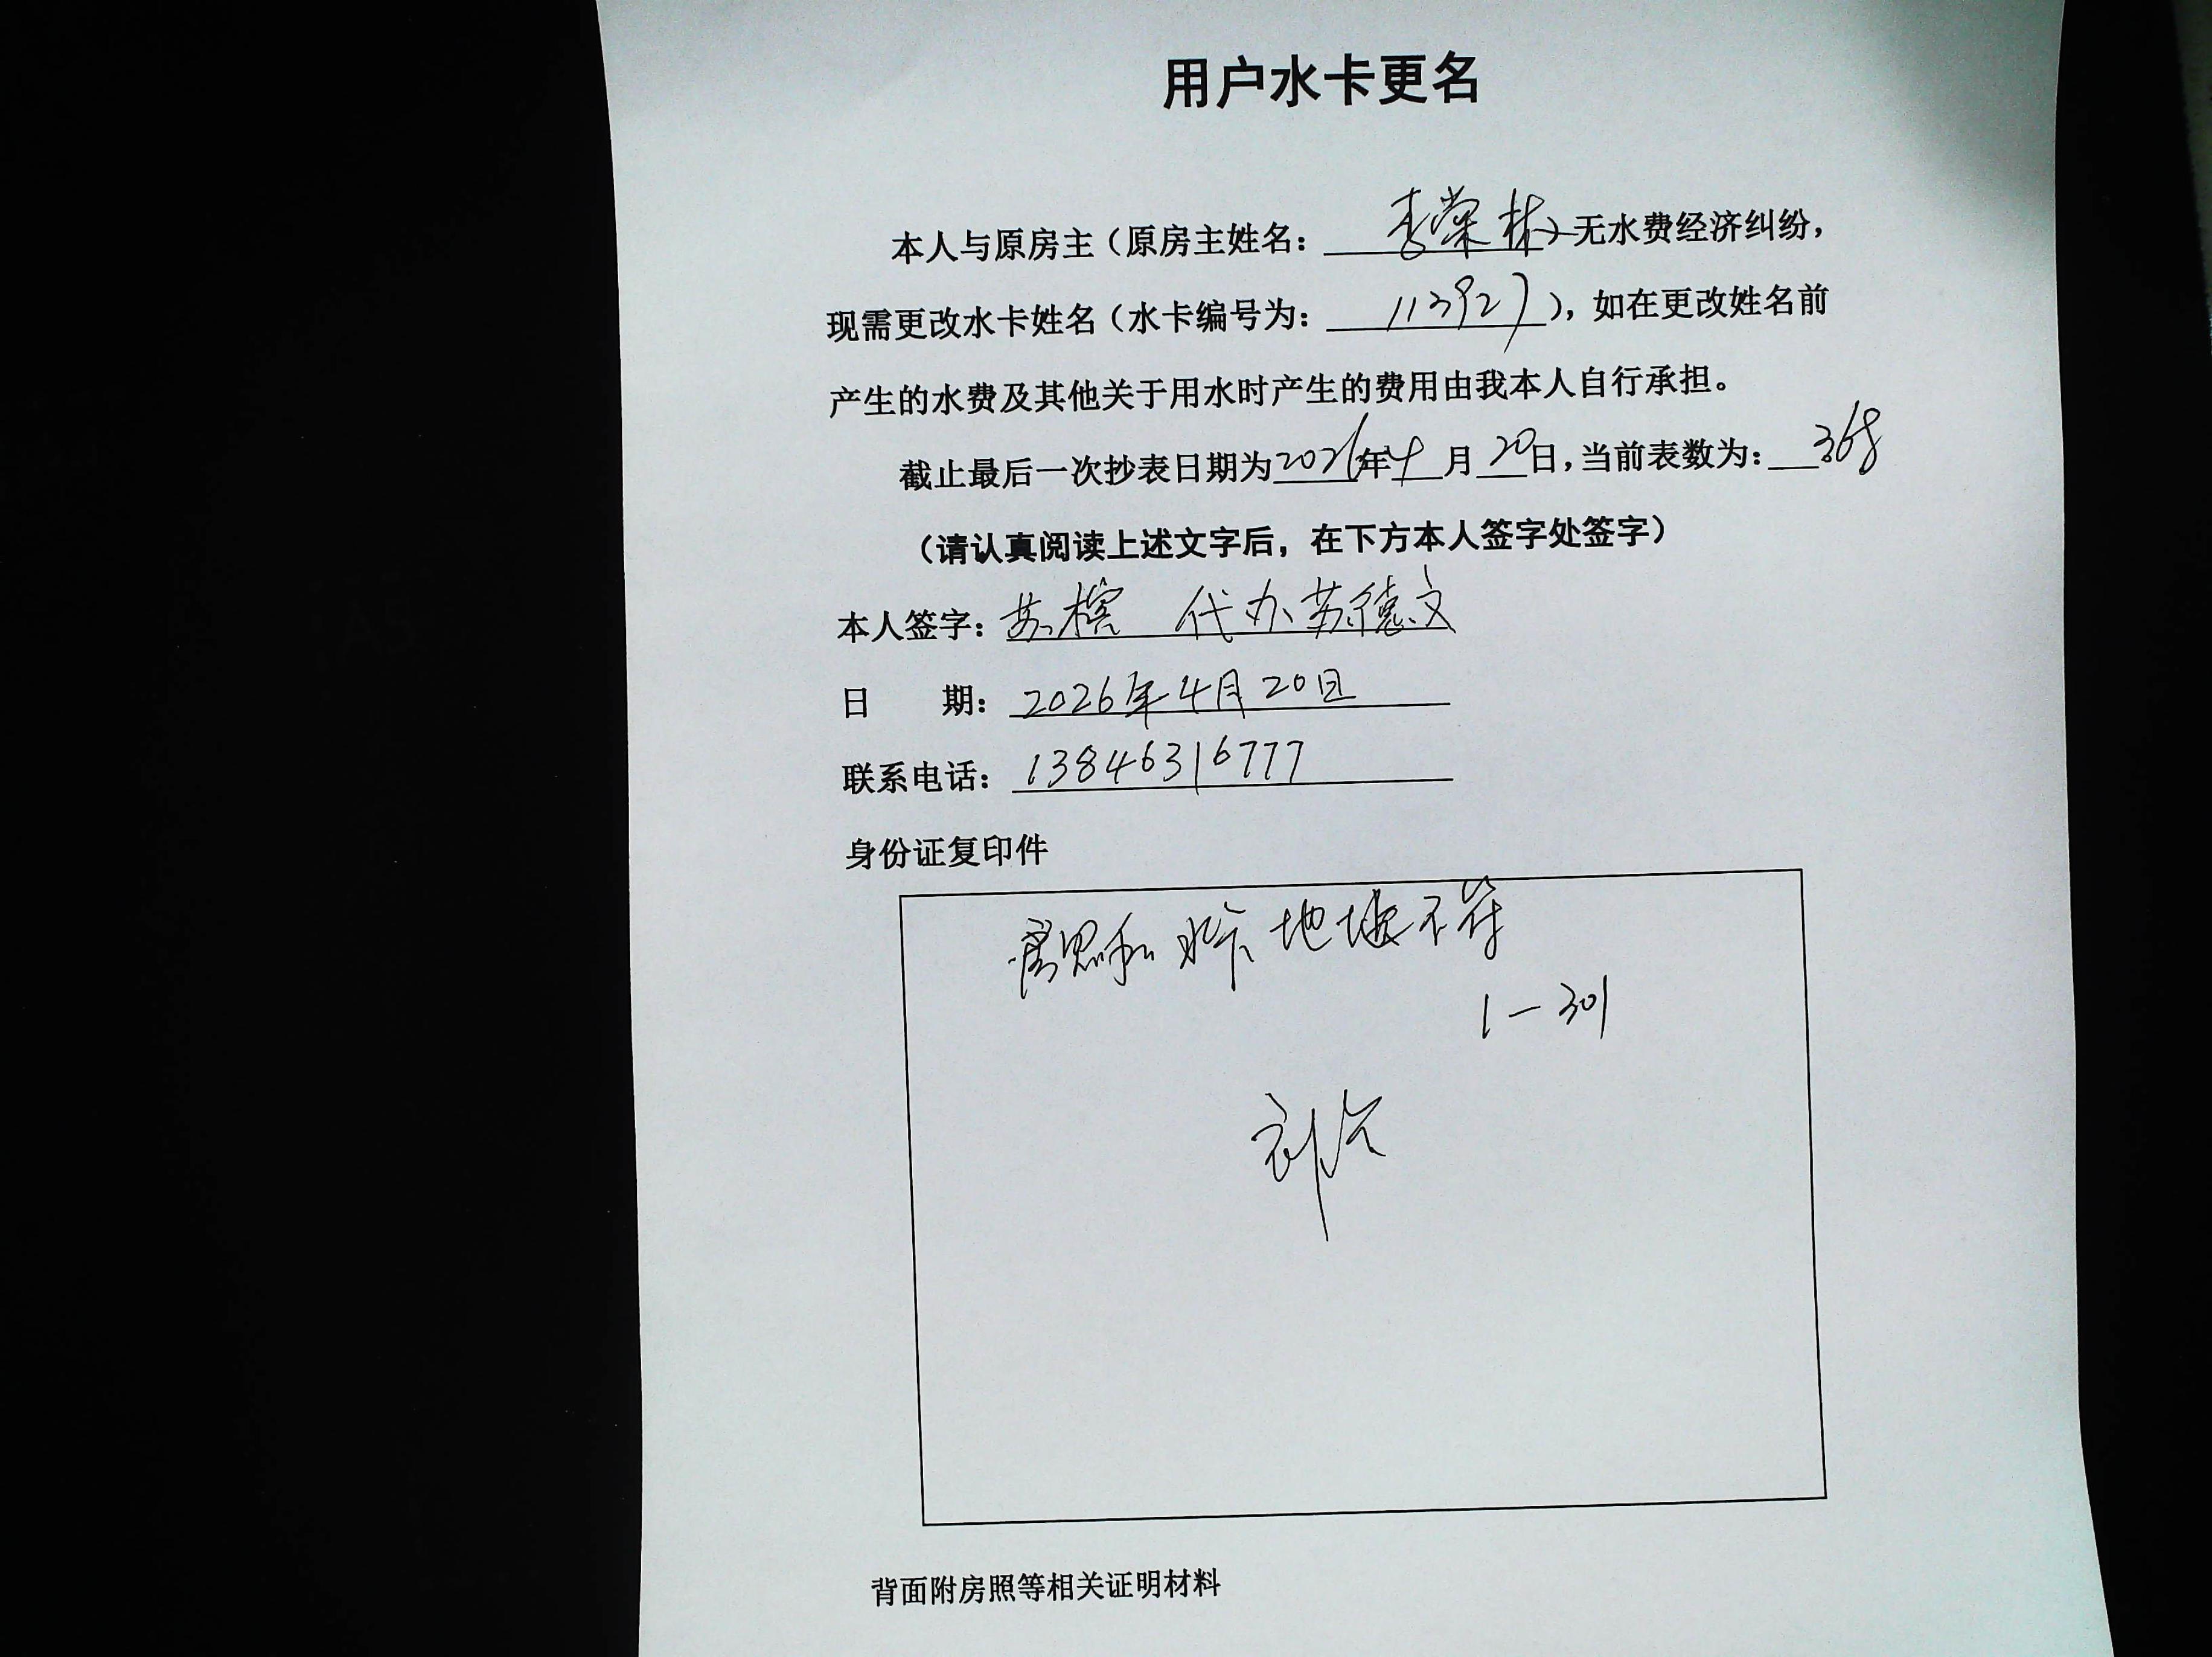 用户水卡更名
本人与原房主（原房主姓名：李荣林）无水费经济纠纷，
现需更改水卡姓名（水卡编号为：113927），如在更改姓名前
产生的水费及其他关于用水时产生的费用由我本人自行承担。
截止最后一次抄表日期为2026年4月20日，当前表数为：368
（请认真阅读上述文字后，在下方本人签字处签字）
本人签字：苏槟 代办苏德文
日 期：2026年4月20日
联系电话：13846316777
身份证复印件
房照和水卡地址不符
1-301
背面附房照等相关证明材料